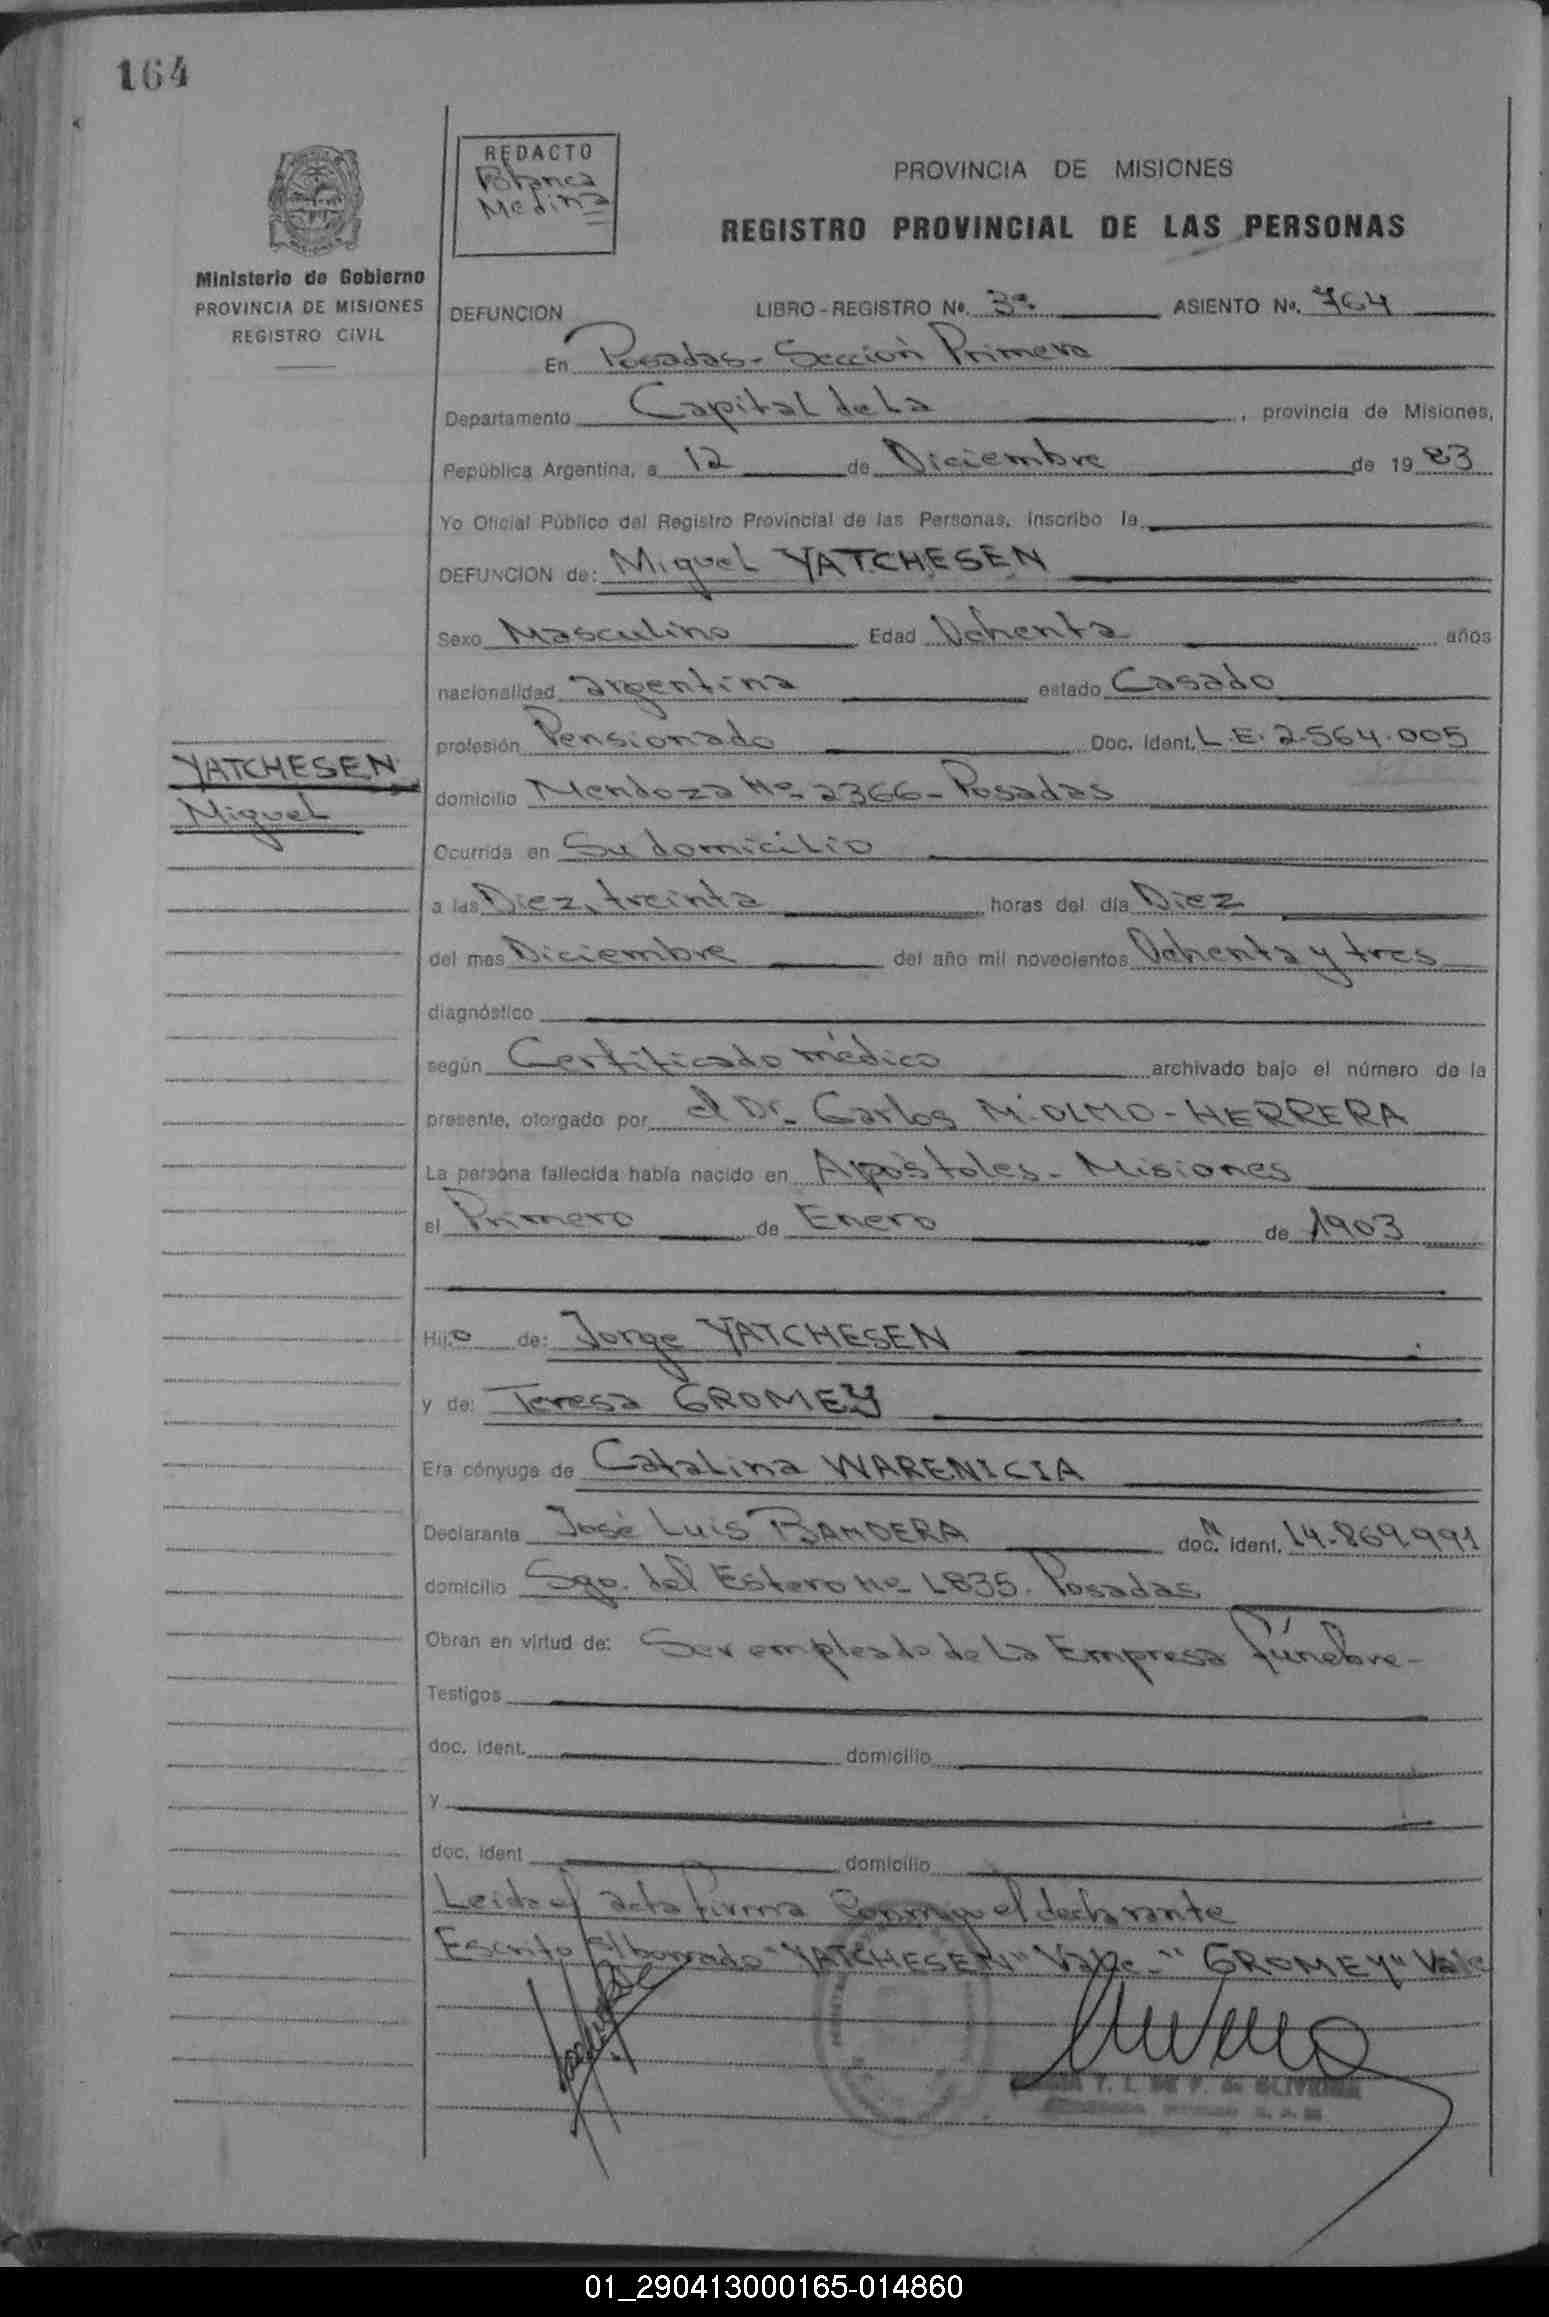 164
REDACTO
Blanca
Medina
PROVINCIA DE MISIONES
REGISTRO PROVINCIAL DE LAS PERSONAS
Ministerio de Gobierno
PROVINCIA DE MISIONES
REGISTRO CIVIL
DEFUNCION LIBRO - REGISTRO Nº. 3º. ASIENTO Nº. 764
En Posadas - Sección Primera
Departamento Capital de La, provincia de Misiones,
República Argentina, a 12 de Diciembre de 19 83
Yo Oficial Público del Registro Provincial de las Personas, inscribo la
DEFUNCION de: Miguel YATCHESEN
Sexo Masculino Edad Ochenta años
nacionalidad argentina estado Casado
profesión Pensionado Doc. Ident. L.E. 2.564.005
YATCHESEN
Miguel
domicilio Mendoza Nº 2366 - Posadas
Ocurrida en Su domicilio
a las Diez, treinta horas del día Diez
del mes Diciembre del año mil novecientos Ochenta y tres
diagnóstico
según Certificado médico archivado bajo el número de la
presente, otorgado por el Dr. Carlos M. OLMO - HERRERA
La persona fallecida había nacido en Apóstoles - Misiones
el Primero de Enero de 1903
Hijo de: Jorge YATCHESEN
y de: Teresa GROMEY
Era cónyuge de Catalina WARENICIA
Declarante José Luis BANDERA doc. ident. 14.869.991
domicilio Sgo. del Estero Nº 1835. Posadas
Obran en virtud de: Ser empleado de La Empresa fúnebre -
Testigos
doc. ident. domicilio
y
doc. ident domicilio
Leida el acta firma Conmigo el declarante
Escrito s/borrado "YATCHESEN" Vale - "GROMEY" Vale
01_290413000165-014860